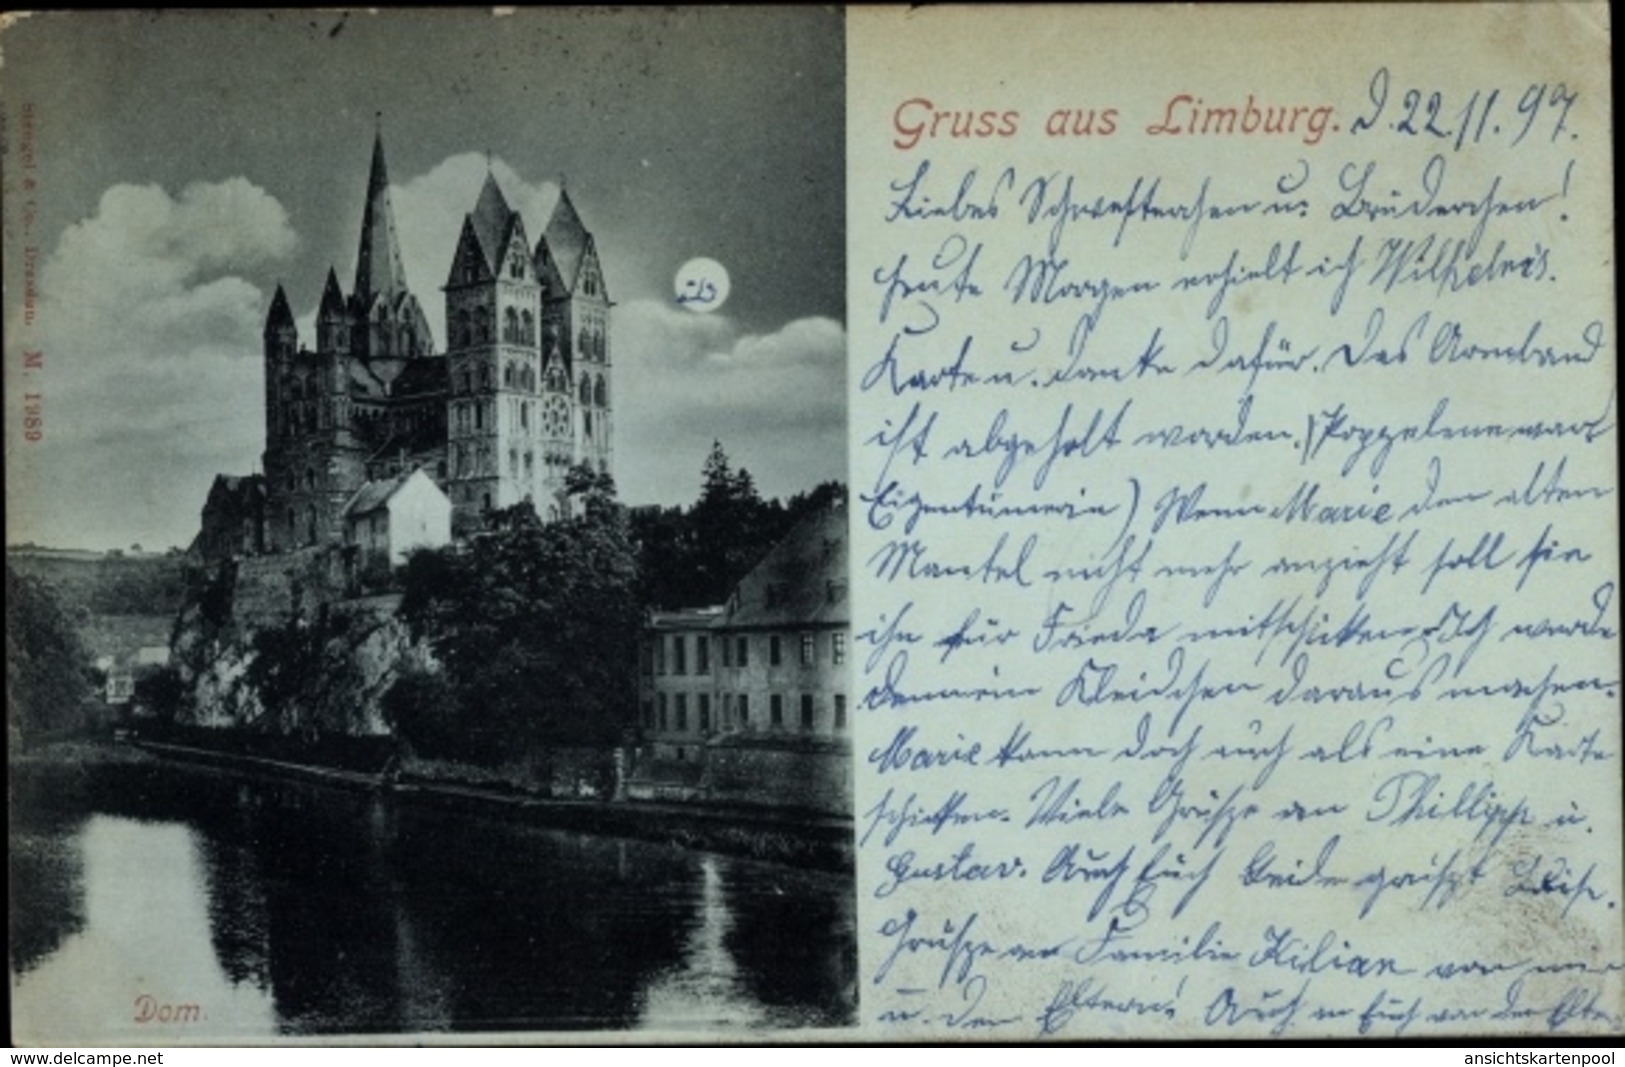 Stengel & Co., Dresden. M. 1989
Gruss aus Limburg. D. 22.11.97.
Liebes Schwesterchen u. Brüderchen!
Heute Morgen erhielt ich Wilhelm's
Karte u. danke dafür. Das Armband
ist abgeholt worden. (Poppelene war
Eigentümerin) Wenn Marie den alten
Mantel nicht mehr anzieht soll sie
ihn für Frieda mitschicken. Ich werde
dann ein Kleidchen daraus machen.
Marie kann doch auch als eine Karte
schicken. Viele Grüsse an Phillipp u.
Gustav. Auch Euch beide grüsst Luise.
Grüsse an Familie Kilian von mir
u. den Eltern! Auch an Euch von den
Dom.
www.delcampe.net
ansichtskartenpool